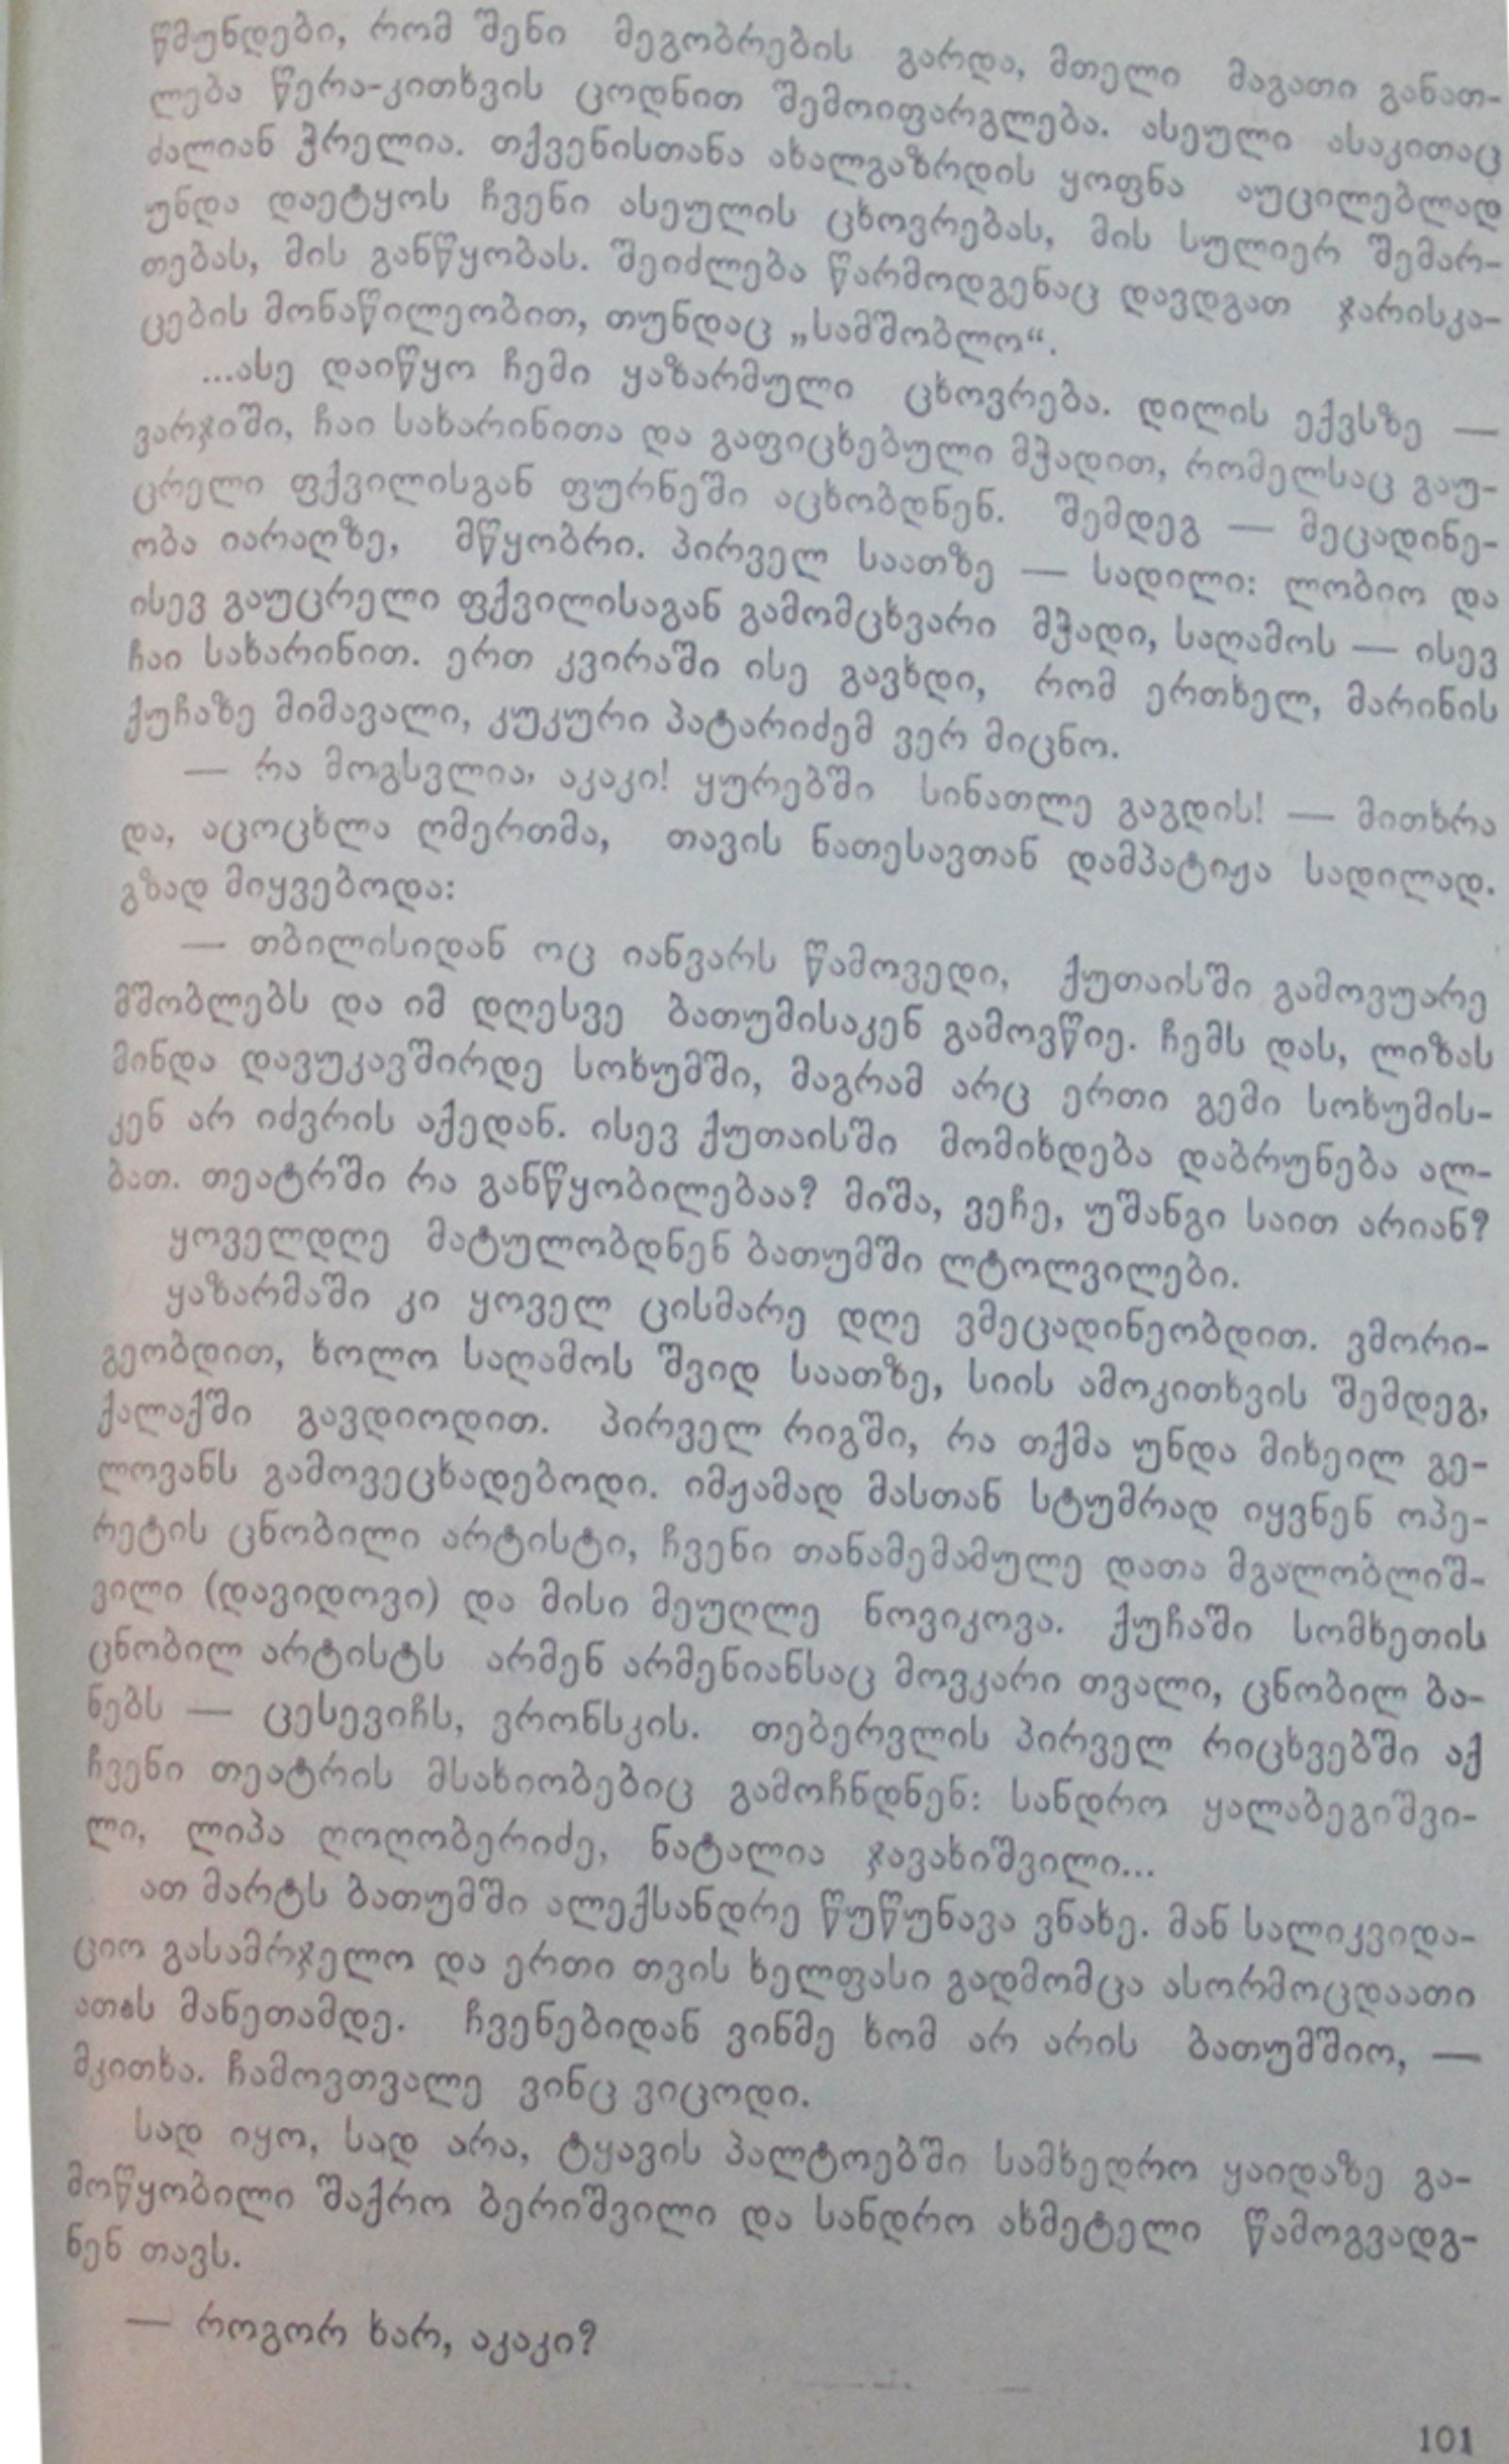 წმუნდები, რომ შენი მეგობრების გარდა, მთელი მაგათი განათ-
ლება წერა-კითხვის ცოდნით შემოიფარგლება. ასეული ასაკითაც
ძალიან ჭრელია. თქვენისთანა ახალგაზრდის ყოფნა აუცილებლად
უნდა დაეტყოს ჩვენი ასეულის ცხოვრებას, მის სულიერ შემარ-
თებას, მის განწყობას. შეიძლება წარმოდგენაც დავდგათ ჯარისკა-
ცების მონაწილეობით, თუნდაც „სამშობლო“.
...ასე დაიწყო ჩემი ყაზარმული ცხოვრება. დილის ექვსზე —
ვარჯიში, ჩაი სახარინითა და გაფიცხებული მჭადით, რომელსაც გაუ-
ცრელი ფქვილისგან ფურნეში აცხობდნენ. შემდეგ — მეცადინე-
ობა იარაღზე, მწყობრი. პირველ საათზე — სადილი: ლობიო და
ისევ გაუცრელი ფქვილისაგან გამომცხვარი მჭადი, საღამოს — ისევ
ჩაი სახარინით. ერთ კვირაში ისე გავხდი, რომ ერთხელ, მარინის
ქუჩაზე მიმავალი, კუკური პატარიძემ ვერ მიცნო.
— რა მოგსვლია, აკაკი! ყურებში სინათლე გაგდის! — მითხრა
და, აცოცხლა ღმერთმა, თავის ნათესავთან დამპატიჟა სადილად.
გზად მიყვებოდა:
— თბილისიდან ოც იანვარს წამოვედი, ქუთაისში გამოვუარე
მშობლებს და იმ დღესვე ბათუმისაკენ გამოვწიე. ჩემს დას, ლიზას
მინდა დავუკავშირდე სოხუმში, მაგრამ არც ერთი გემი სოხუმის-
კენ არ იძვრის აქედან. ისევ ქუთაისში მომიხდება დაბრუნება ალ-
ბათ. თეატრში რა განწყობილებაა? მიშა, ვეჩე, უშანგი საით არიან?
ყოველდღე მატულობდნენ ბათუმში ლტოლვილები.
ყაზარმაში კი ყოველ ცისმარე დღე ვმეცადინეობდით. ვმორი-
გეობდით, ხოლო საღამოს შვიდ საათზე, სიის ამოკითხვის შემდეგ,
ქალაქში გავდიოდით. პირველ რიგში, რა თქმა უნდა მიხეილ გე-
ლოვანს გამოვეცხადებოდი. იმჟამად მასთან სტუმრად იყვნენ ოპე-
რეტის ცნობილი არტისტი, ჩვენი თანამემამულე დათა მგალობლიშ-
ვილი (დავიდოვი) და მისი მეუღლე ნოვიკოვა. ქუჩაში სომხეთის
ცნობილ არტისტს არმენ არმენიანსაც მოვკარი თვალი, ცნობილ ბა-
ნებს — ცესევიჩს, ვრონსკის. თებერვლის პირველ რიცხვებში აქ
ჩვენი თეატრის მსახიობებიც გამოჩნდნენ: სანდრო ყალაბეგიშვი-
ლი, ლიპა ღოღობერიძე, ნატალია ჯავახიშვილი...
ათ მარტს ბათუმში ალექსანდრე წუწუნავა ვნახე. მან სალიკვიდა-
ციო გასამრჯელო და ერთი თვის ხელფასი გადმომცა ასორმოცდაათი
ათას მანეთამდე. ჩვენებიდან ვინმე ხომ არ არის ბათუმშიო, —
მკითხა. ჩამოვთვალე ვინც ვიცოდი.
სად იყო, სად არა, ტყავის პალტოებში სამხედრო ყაიდაზე გა-
მოწყობილი შაქრო ბერიშვილი და სანდრო ახმეტელი წამოგვადგ-
ნენ თავს.
— როგორ ხარ, აკაკი?
101